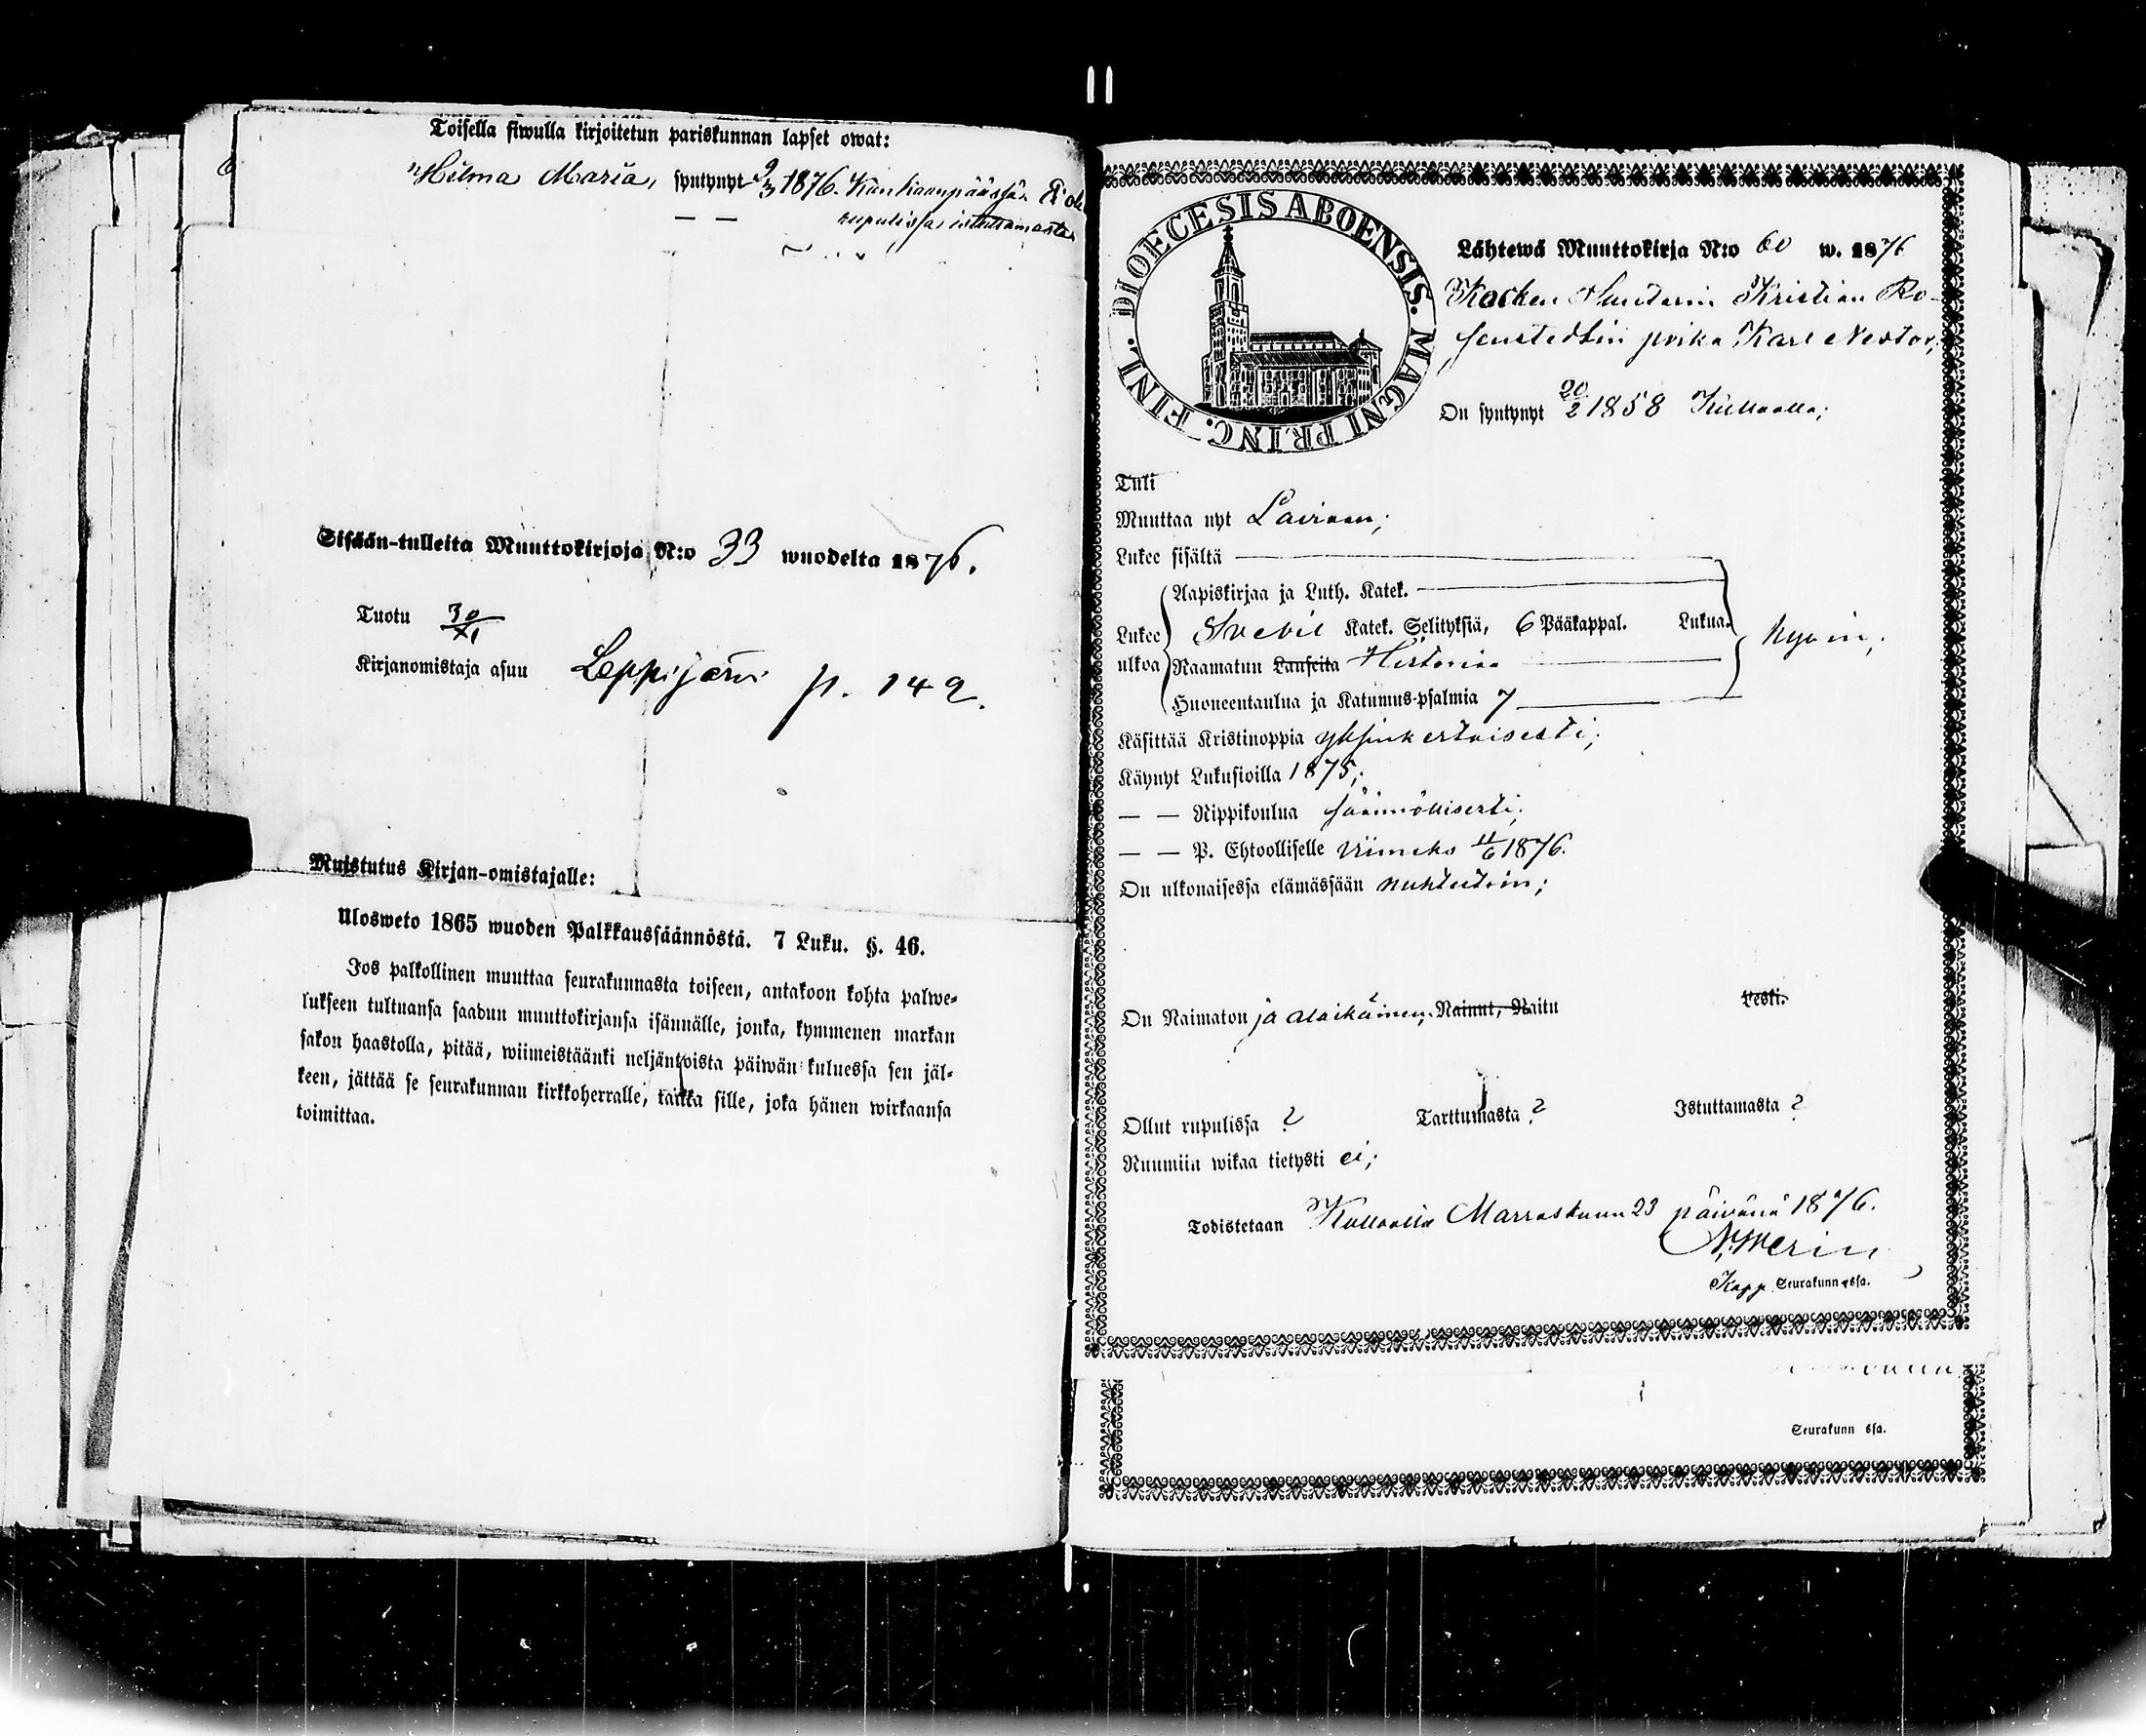 Toisella siwulla kirjoitetun pariskunnan lapset owat:
Hilma Maria, syntynyt 9/3 1876. Kankaanpäässä. Ei ole
— — rupulissa, istuttamasta
Sisään-tulleita Muuttokirjoja N:o 33 wuodelta 1876.
Tuotu 30/XI
Kirjanomistaja asuu Leppijärvi p. 142.
Muistutus Kirjan-omistajalle:
Ulosweto 1865 wuoden Palkkaussäännöstä. 7 Luku. §. 46.
Jos palkollinen muuttaa seurakunnasta toiseen, antakoon kohta palwe-
lukseen tultuansa saadun muuttokirjansa isännälle, jonka, kymmenen markan
sakon haastolla, pitää, wiimeistäänki neljäntoista päiwän kuluessa sen jäl-
keen, jättää se seurakunnan kirkkoherralle, taikka sille, joka hänen wirkaansa
toimittaa.
DIOECESIS ABOENSIS. MAGNI PRINC. FINL.
Lähtewä Muuttokirja N:o 60 w. 1876
Kristian Ro-
senstedtin poika Karl Nestor,
On syntynyt 20/2 1858 Kullaalla;
Tuli
Muuttaa nyt Laviaan;
Lukee sisältä
Aapiskirjaa ja Luth. Katek.
Lukee Svebil Katek. Selityksiä, 6 Pääkappal. Lukua. hyvin;
ulkoa Raamatun Lauseita Historiaa
Huoneentaulua ja Katumus-psalmia 7
Käsittää Kristinoppia yksinkertaisesti;
Käynyt Lukusioilla 1875;
— — Rippikoulua säännöllisesti;
— — P. Ehtoolliselle viimeks 11/6 1876.
On ulkonaisessa elämässään nuhteetoin;
On Naimaton ja alaikäinen. Nainut, Naitu Leski.
Ollut rupulissa ? Tarttumasta ? Istuttamasta ?
Ruumiin wikaa tietysti ei;
Todistetaan Kullaalla Marraskuun 23 päivänä 1876.
Kapp. Seurakunnassa.
Seurakunn ssa.